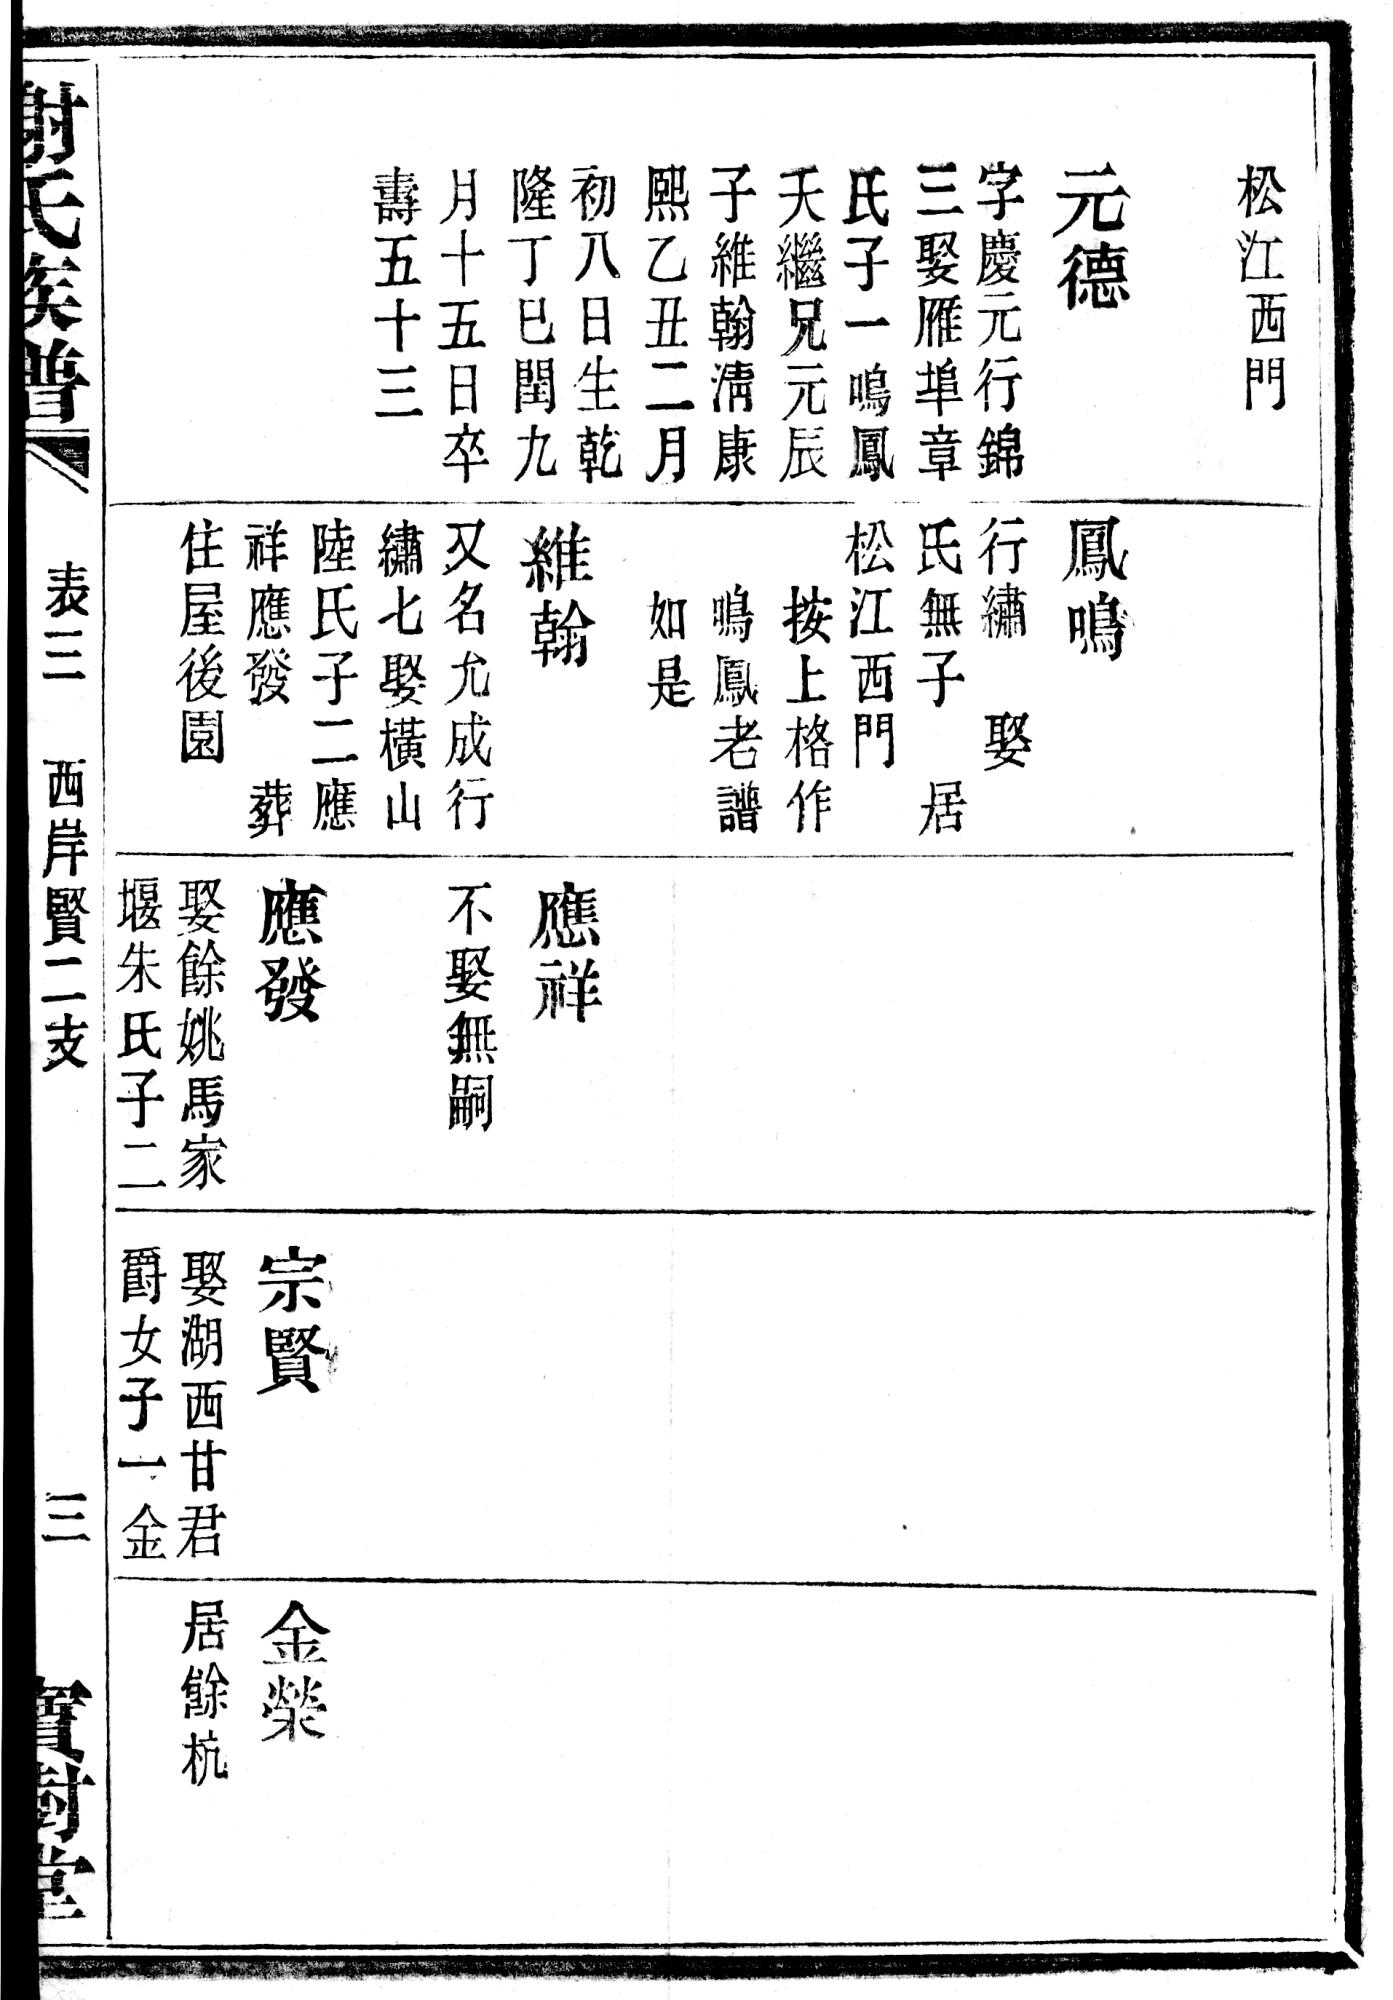 松江西門
元德
字慶元行錦
三娶雁埠章
氏子一鳴鳳
夭繼兄元辰
子維翰淸康
熙乙丑二月
初八日生乾
隆丁巳閏九
月十五日卒
壽五十三
鳳鳴
行繡　娶
氏無子　居
松江西門
按上格作
鳴鳳老譜
如是
維翰
又名尤成行
繡七娶橫山
陸氏子二應
祥應發　葬
住屋後園
應祥
不娶無嗣
應發
娶餘姚馬家
堰朱氏子二
宗賢
娶湖西甘君
爵女子一金
金榮
居餘杭
謝氏族譜
表三　西岸賢二支
三
寶樹堂